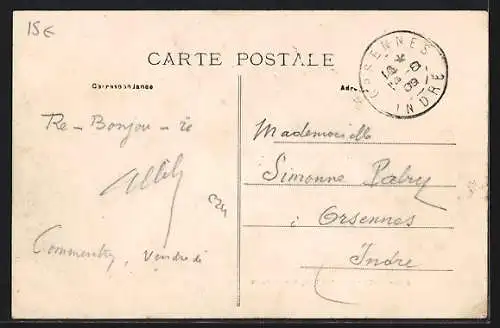 15€
CARTE POSTALE
Correspondance
ORSENNES
INDRE
09
Re-Bonjou-re
Commentry, Vendredi
C24
Mademoiselle
Simonne Pabry
à Orsennes
Indre